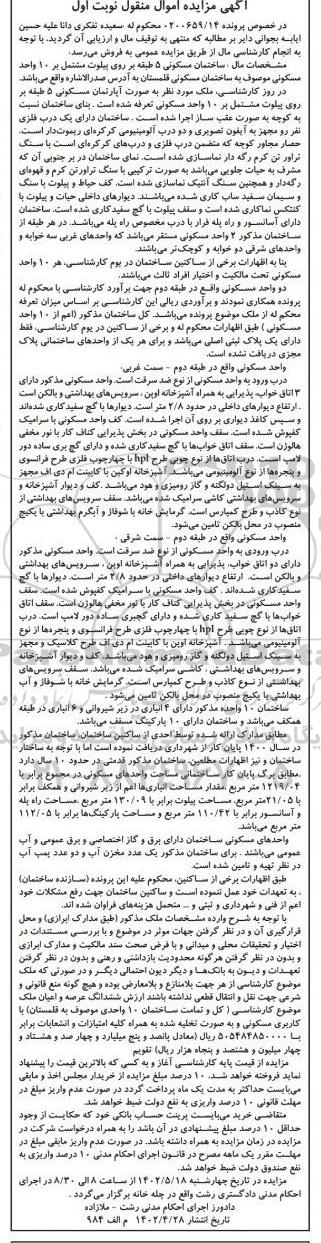 آگهی مزایده اموال منقول نوبت اول
در خصوص پرونده ۰۲۰۰۶۵۹/۱۴ محکوم له :سعیده تفکری دانا علیه حسین
ایابه بجوانی دایر بر مطالبه که منتهی به توقیف مال و ارزیابی آن گردید. با توجه
به انجام کارشناسی مال از طریق مزایده عمومی به فروش می‌رسد.
مشخصات مال : ساختمان مسکونی ۵ طبقه بر روی پیلوت مشتمل بر ۱۰ واحد
مسکونی موصوف به ساختمان مسکونی قلمستان به آدرس صدرالاشاره واقع می‌باشد.
در روز کارشناسی، ملک مورد نظر به صورت آپارتمان مسکونی ۵ طبقه بر
روی پیلوت مشتمل بر ۱۰ واحد مسکونی تعرفه شده است . بنای ساختمان نسبت
به کوچه به صورت عقب ساز اجرا شده است . ساختمان دارای یک درب فلزی
نفر رو مجهز به آیفون تصویری و دو درب آلومینیومی کرکره‌ای ریموت‌دار است.
حصار مجاور کوچه که متضمن درب فلزی و درب‌های کرکره‌ای است با سنگ
تراور تن کرم رگه دار نماسازی شده است. نمای ساختمان در بر جنوبی آن که
مشرف به حیات جلویی می‌باشد به صورت ترکیبی با سنگ تراورتن کرم و قهوه‌ای
رگه‌دار و همچنین سنگ آنتیک نماسازی شده است. کف حیاط و پیلوت با سنگ
و سیمان سفید ساب کاری شده می‌باشند. دیوارهای داخلی حیات و پیلوت با
کنتکس نماکاری شده است و سقف پیلوت با گچ سفیدکاری شده است. ساختمان
دارای آسانسور و راه پله فرار با درب مخصوص راه پله می‌باشد. در هر طبقه از
ساختمان مذکور ۲ واحد مسکونی مستقر می‌باشد که واحدهای غربی سه خوابه و
واحدهای شرقی دو خوابه و کوچک‌تر می‌باشند.
بنا به اظهارات برخی از ساکنین ساختمان در یوم کارشناسی، هر ۱۰ واحد
مسکونی تحت مالکیت و اختیار افراد ثالث می‌باشند.
دو واحد مسکونی واقع در طبقه دوم جهت برآورد کارشناسی با محکوم له
پرونده همکاری نمودند و برآوردی ریالی این کارشناسی بر اساس میزان تعرفه
محکم له از ملک موضوع پرونده می‌باشد. کل ساختمان مذکور (اعم از ۱۰ واحد
مسکونی ) طبق اظهارات محکوم له و برخی از ساکنین در یوم کارشناسی، فقط
دارای یک پلاک ثبتی اصلی می‌باشد و برای هر یک از واحدهای ساختمانی پلاک
مجزی دریافت نشده است.
واحد مسکونی واقع در طبقه دوم – سمت غربی:
درب ورود به واحد مسکونی از نوع ضد سرقت است. واحد مسکونی مذکور دارای
۳ اتاق خواب، پذیرایی به همراه آشپزخانه اوپن ، سرویس‌های بهداشتی و بالکن است
. ارتفاع دیوارهای داخلی در حدود ۲/۸ متر است. دیوارها با گچ سفیدکاری شده‌اند
و سپس کاغذ دیواری بر روی آن اجرا شده است. کف واحد مسکونی با سرامیک
کفپوش شده است. سقف واحد مسکونی در بخش پذیرایی کناف کار با نور مخفی
هالوژن است. سقف اتاق خواب‌ها با گچ سفیدکاری شده و دارای گچ بری ساده دور
لامپ است. درب اتاق‌ها از نوع چوبی طرح hpl با چهارچوب فلزی طرح فرانسوی
و پنجره‌ها از نوع آلومینیومی می‌باشند. آشپزخانه اوکین با کابینت ام دی اف مجهز
به سینک استیل دولگنه و گاز رومیزی و هود می‌باشد. کف و دیوار آشپزخانه و
سرویس‌های بهداشتی کاشی سرامیک شده می‌باشد. سقف سرویس‌های بهداشتی از
نوع کاذب و طرح کمپارس است. گرمایش خانه با شوفاژ و آبگرم بهداشتی با پکیج
منصوب در محل بالکن تامین می‌شود.
واحد مسکونی واقع در طبقه دوم – سمت شرقی :
درب ورودی به واحد مسکونی از نوع ضد سرقت است. واحد مسکونی مذکور
دارای دو اتاق خواب، پذیرایی به همراه آشپزخانه اوپن ، سرویس‌های بهداشتی
و بالکن است. ارتفاع دیوارهای داخلی در حدود ۲/۸ متر است. دیوارها با گچ
سفیدکاری شده‌اند . کف واحد مسکونی با سرامیک کفپوش شده است. سقف
واحد مسکونی در بخش پذیرایی کناف کار با نور مخفی هالوژن است. سقف اتاق
خواب‌ها با گچ سفید کاری شده و دارای گچبری ساده دور لامپ است. درب
اتاق‌ها از نوع چوبی طرح hpl با چهارچوب فلزی طرح فرانسوی و پنجره‌ها از نوع
آلومینیومی می‌باشد . آشپزخانه اوپن با کابینت ام دی اف طرح کلاسیک و مجهز
به سینک استیل دولگنه و گاز رومیزی و هود می‌باشند. کف و دیوار آشپزخانه
و سرویس‌های بهداشتی ، کاشی سرامیک شده می‌باشد. سقف سرویس‌های
بهداشتی از نوع کاذب و طرح کمپارس است. گرمایش خانه با شوفاژ و آب
بهداشتی با پکیج منصوب در محل بالکن تامین می‌شود.
ساختمان ۱۰ واحده مذکور دارای ۴ انباری در زیر شیروانی و ۶ انباری در طبقه
همکف می‌باشد و ساختمان دارای ۱۰ پارکینگ مسقف می‌باشد.
مطابق مدارک ارائه شده توسط احدی از ساکنین ساختمان، ساختمان مذکور
در سال ۱۴۰۰ پایان کار از شهرداری دریافت نموده است اما با توجه به ساختار
ساختمان و نیز اظهارات مطلعین، ساختمان مذکور قدمتی در حدود ۱۰ سال دارد
.مطابق برگ پایان کار ساختمانی مساحت واحدهای مسکونی در مجموع برابر با
۱۲۱۹/۰۴ متر مربع ،مقدار مساحت انباری‌ها اعم از زیر شیروانی و همکف برابر
با ۲۱/۰۵متر مربع، مساحت پیلوت برابر با ۱۳۰/۰۹ متر مربع ،مساحت راه پله
و آسانسور برابر با ۱۱۰/۴۲ متر مربع و مساحت پارکینگ‌ها برابر با ۱۱۲/۰۵
متر مربع می‌باشد.
واحدهای مسکونی ساختمان دارای برق و گاز اختصاصی و برق عمومی و آب
عمومی می‌باشند . برای ساختمان مذکور یک عدد مخزن آب و دو عدد پمپ آب
در نظر تهیه و تامین شده است.
طبق اظهارات برخی از ساکنین، محکوم علیه این پرونده (سازنده ساختمان)
، به تعهدات خود عمل ننموده است و ساکنین ساختمان جهت رفع مشکلات خود
اعم از فنی و شهرداری و ثبتی و ... متحمل هزینه‌های فراوان شده اند.
با توجه به شرح وارده مشخصات ملک مذکور (طبق مدارک ابرازی) و محل
قرارگیری آن و در نظر گرفتن جهات موثر در موضوع و با بررسی مستندات در
اختیار و تحقیقات محلی و میدانی و با فرض صحت سند مالکیت و مدارک ابرازی
و بدون در نظر گرفتن هرگونه محدودیت بازداشتی و رهنی و بدون در نظر گرفتن
تعهدات و دیون به بانک‌ها و دیگر دیون احتمالی دیگر و در صورتی که ملک
موضوع کارشناسی از هر جهت بلامنازع و بلامعارض بوده و هیچ گونه منع قانونی و
شرعی جهت نقل و انتقال قطعی نداشته باشند ارزش ششدانگ عرصه و اعیان ملک
موضوع کارشناسی ( کل و تمامت ساختمان ۱۰ واحدی موصوف به قلمستان) با
کاربری مسکونی و به صورت تخلیه شده به همراه کلیه امتیازات و انشعابات برابر
با ۵۰۵۴۸۴۸۵۰۰۰۰ ریال (معادل پانصد و پنج میلیارد و چهار صد و هشتاد و
چهار میلیون و هشتصد و پنجاه هزار ریال) تقویم
مزایده از قیمت پایه کارشناسی آغاز و به کسی که بالاترین قیمت را پیشنهاد
نماید فروخته خواهد شد. ۱۰ درصد مبلغ مزایده از خریدار مجلس اخذ و مابقی
می‌بایست حداکثر به مدت یک ماه پرداخت گردد در صورت عدم واریز مبلغ در
مهلت قانونی ۱۰ درصد واریزی به نفع دولت ضبط خواهد شد.
متقاضی خرید می‌بایست پرینت حساب بانکی خود که حکایت از وجود
حداقل ۱۰ درصد مبلغ پیشنهادی در آن باشد را به همراه درخواست شرکت در
مزایده در زمان مزایده به همراه داشته باشد. در صورت عدم واریز مابقی مبلغ در
مهلت مقرر یک ماهه مصرح در قانون اجرای احکام مدنی ۱۰ درصد واریزی به
نفع صندوق دولت ضبط خواهد شد.
مزایده در تاریخ چهارشنبه ۱۴۰۲/۵/۱۸ از ساعت ۸ الی ۸/۳۰ در اجرای
احکام مدنی دادگستری رشت واقع در چله خانه برگزار می‌گردد .
دادورز اجرای احکام مدنی رشت – ملازاده
تاریخ انتشار ۱۴۰۲/۴/۲۸ م الف ۹۸۴